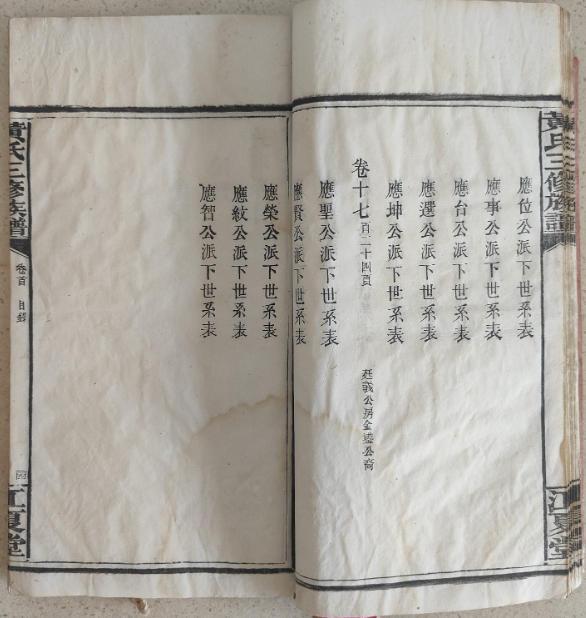 黃氏三修族譜
江夏堂
應位公派下世系表
應事公派下世系表
應台公派下世系表
應選公派下世系表
應坤公派下世系表
卷十七 百二十四頁
應聖公派下世系表
應賢公派下世系表
應榮公派下世系表
應紋公派下世系表
應智公派下世系表
黃氏三修族譜
卷首 目錄
四
江夏堂